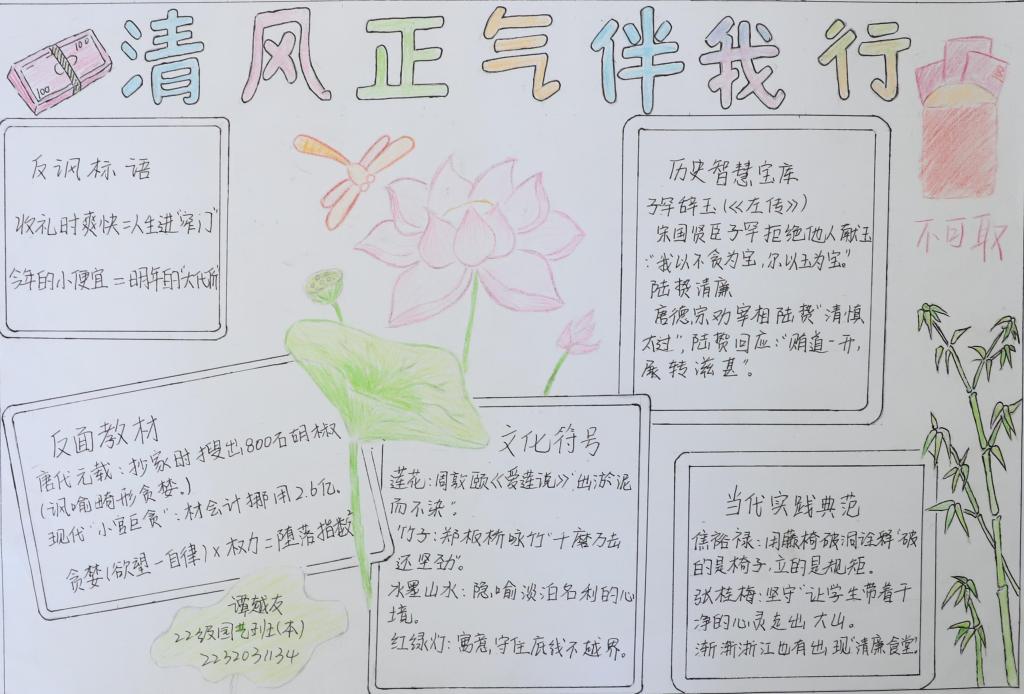 清风正气伴我行
100
100
反讽标语
收礼时爽快=人生进"窄门"
今年的小便宜=明年的"大代价"
反面教材
唐代元载:抄家时搜出800石胡椒
(讽喻畸形贪婪.)
现代"小官巨贪":村会计挪用2.6亿.
贪婪(欲望-自律)×权力=堕落指数
谭越友
22级园艺班(本)
2232031134
文化符号
莲花:周敦颐《爱莲说》"出淤泥
而不染".
竹子:郑板桥咏竹"千磨万击
还坚劲".
水墨山水:隐喻淡泊名利的心
境.
红绿灯:寓意,守住底线不越界.
历史智慧宝库
子罕辞玉(《左传》)
宋国贤臣子罕拒绝他人献玉
:"我以不贪为宝,尔以玉为宝."
陆贽清廉
唐德宗劝宰相陆贽"清慎
太过",陆贽回应:"贿道一开,
展转滋甚".
不可取
当代实践典范
焦裕禄:用藤椅破洞诠释"破
的是椅子,立的是规矩.
张桂梅:坚守"让学生带着干
净的心灵走出大山.
渐渐浙江也有出现"清廉食堂"